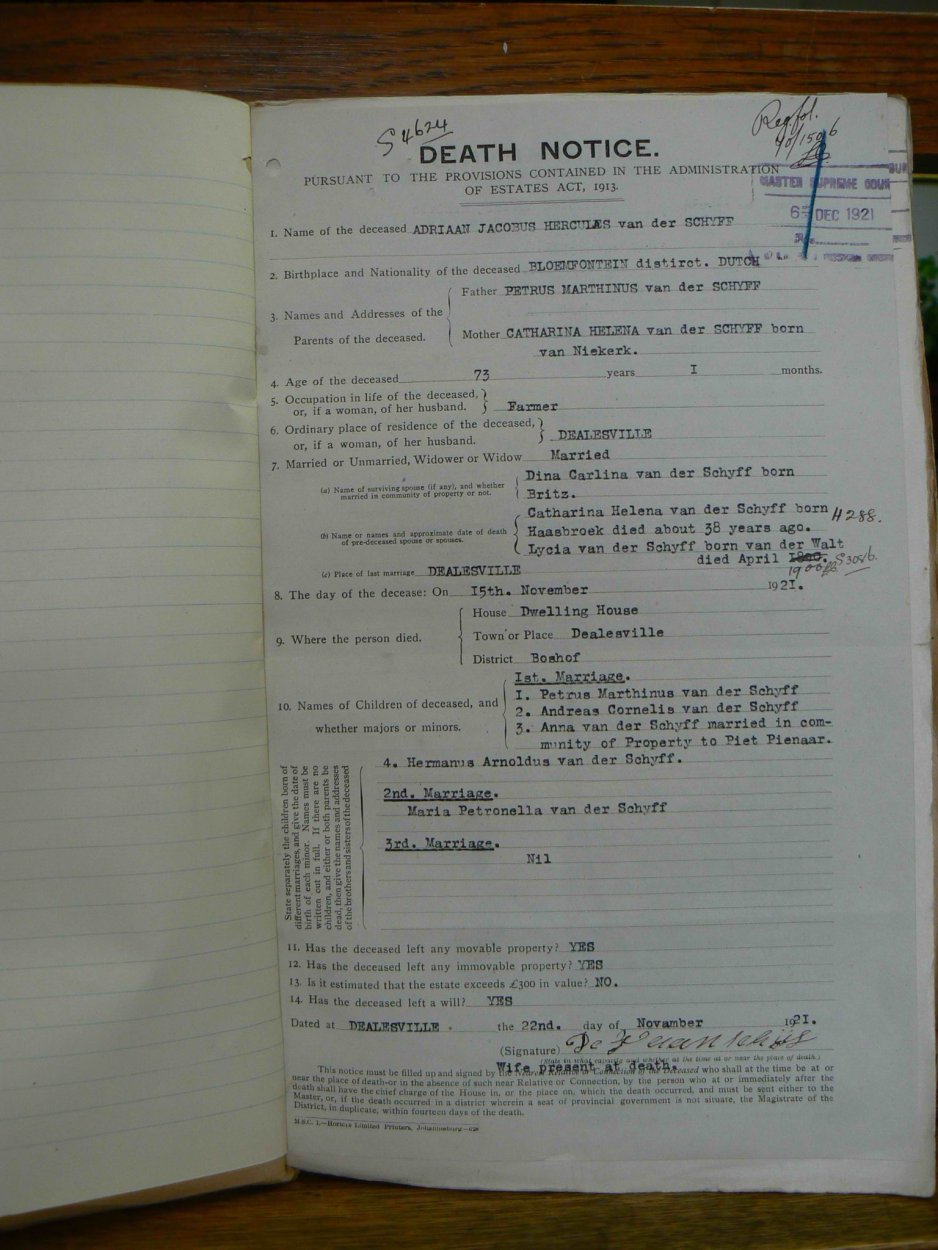 S 4624
Reg fol.
DEATH NOTICE.
PURSUANT TO THE PROVISIONS CONTAINED IN THE ADMINISTRATION
OF ESTATES ACT, 1913.
MASTER SUPREME COURT
6 DEC 1921
1. Name of the deceased ADRIAAN JACOBUS HERCULAS van der SCHYFF
2. Birthplace and Nationality of the deceased BLOEMFONTEIN distirct. DUTCH
3. Names and Addresses of the Parents of the deceased.
Father PETRUS MARTHINUS van der SCHYFF
Mother CATHARINA HELENA van der SCHYFF born
van Niekerk.
4. Age of the deceased 73 years I months.
5. Occupation in life of the deceased,
or, if a woman, of her husband. Farmer
6. Ordinary place of residence of the deceased,
or, if a woman, of her husband. DEALESVILLE
7. Married or Unmarried, Widower or Widow Married
(a) Name of surviving spouse (if any), and whether
married in community of property or not.
Dina Carlina van der Schyff born
Britz.
(b) Name or names and approximate date of death
of pre-deceased spouse or spouses.
Catharina Helena van der Schyff born H 288.
Haasbroek died about 38 years ago.
Lycia van der Schyff born van der Walt
died April 1900
(c) Place of last marriage DEALESVILLE
8. The day of the decease: On 15th. November 1921.
9. Where the person died.
House Dwelling House
Town or Place Dealesville
District Boshof
10. Names of Children of deceased, and
whether majors or minors.
Ist. Marriage.
I. Petrus Marthinus van der Schyff
2. Andreas Cornelis van der Schyff
3. Anna van der Schyff married in com-
munity of Property to Piet Pienaar.
4. Hermanus Arnoldus van der Schyff.
2nd. Marriage.
Maria Petronella van der Schyff
3rd. Marriage.
Nil
State separately the children born of
different marriages, and give the date of
birth of each minor. Names must be
written out in full. If there are no
children, and either or both parents be
dead, then give the names and addresses
of the brothers and sisters of the deceased
11. Has the deceased left any movable property? YES
12. Has the deceased left any immovable property? YES
13. Is it estimated that the estate exceeds £300 in value? NO.
14. Has the deceased left a will? YES
Dated at DEALESVILLE. the 22nd. day of Novamber 1921.
(Signature)
(State in what capacity and whether at the time at or near the place of death.)
Wife present at death.
This notice must be filled up and signed by the Nearest Relative or Connection of the Deceased who shall at the time be at or
near the place of death—or in the absence of such near Relative or Connection, by the person who at or immediately after the
death shall have the chief charge of the House in, or the place on, which the death occurred, and must be sent either to the
Master, or, if the death occurred in a district wherein a seat of provincial government is not situate, the Magistrate of the
District, in duplicate, within fourteen days of the death.
M.S.C. 1.—Hortors Limited Printers, Johannesburg.